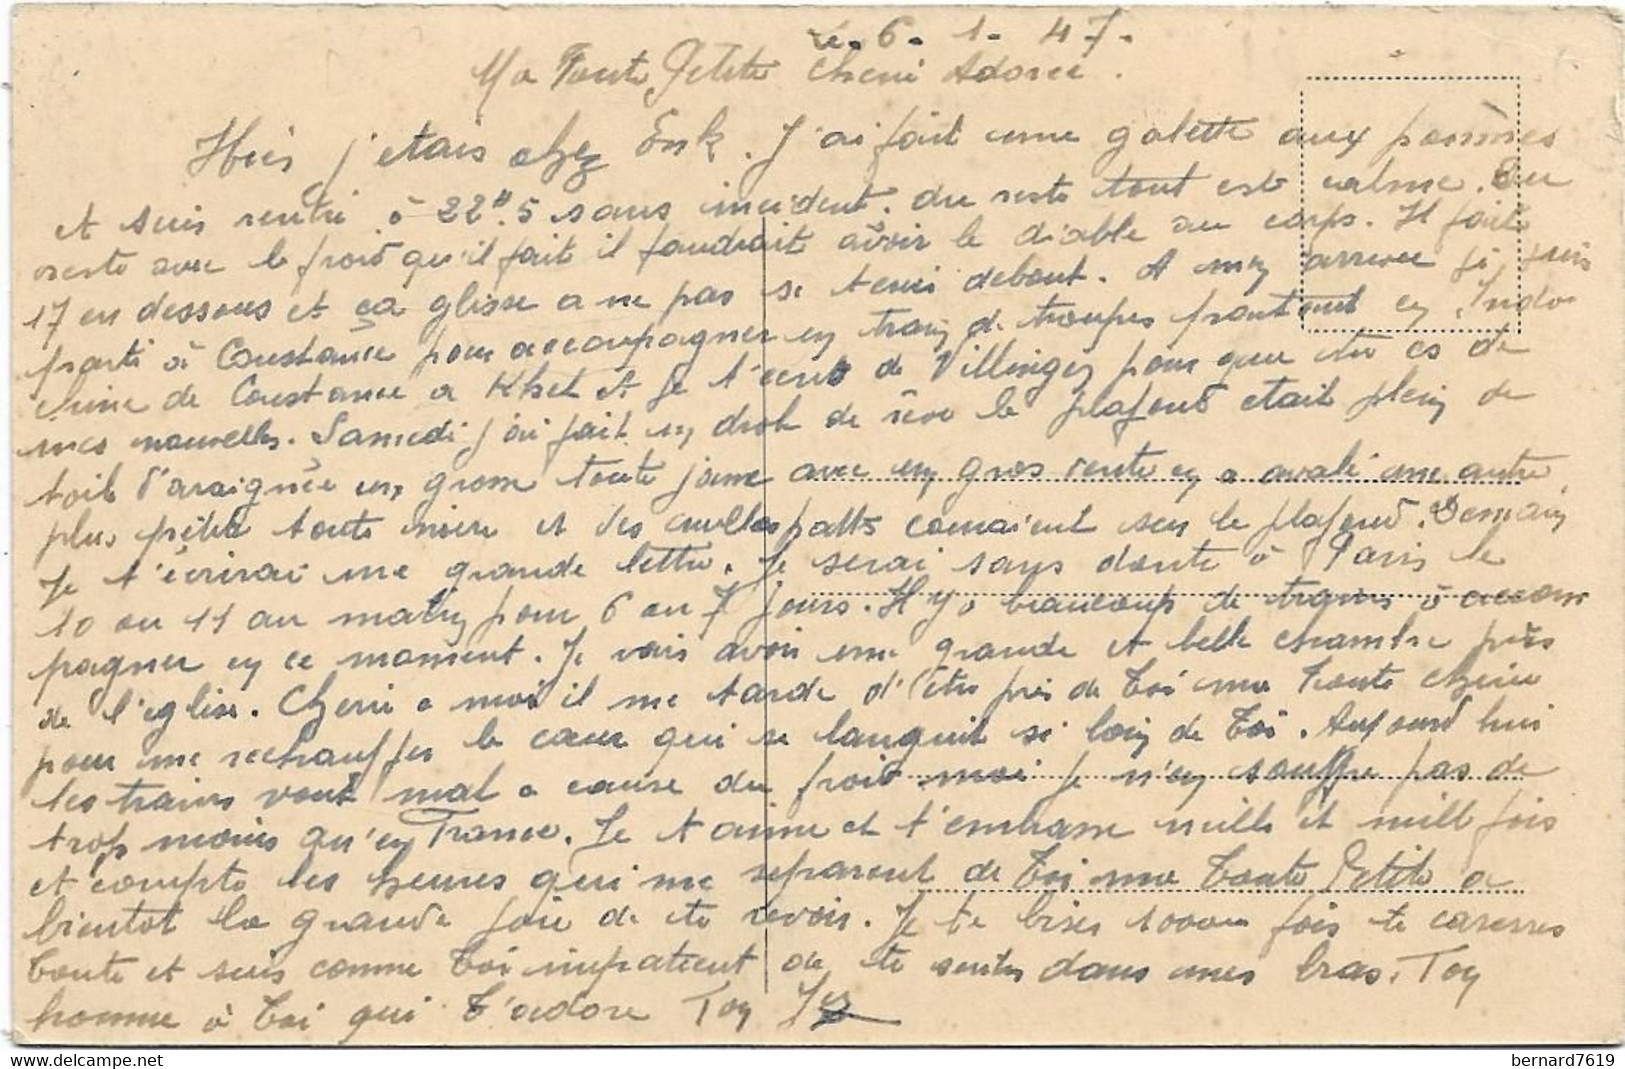 le. 6. 1. 47.
Ma Toute Petite Cherie Adoree.
Hier j'etais chez Enk. J'ai fait une galette aux pommes
et suis rentré à 22H.5 sans incident. du reste tout est calme. Du
reste avec le froid qu'il fait il faudrait avoir le diable au corps. Il fait
17 en dessous et ça glisse a ne pas se tenir debout. A mon arrivee je suis
parti à Constance pour accompagner un train de troupes partant en Indo
chine de Constance a Khel et je t'ecris de Villingen pour que tu es de
mes nouvelles. Samedi j'ai fait un drole de rêve le plafond etait plein de
toile d'araignée une grosse toute jaune avec un gros ventre en a avalé une autre
plus petite toute noire et des mille pattes couraient sur le plafond. Demain
Je t'écrirai une grande lettre. Je serai sans doute à Paris le
10 ou 11 au matin pour 6 ou 7 jours. Il y a beaucoup de trains à accom
pagner en ce moment. Je vais avoir une grande et belle chambre près
de l'eglise. Cherie a moi il me tarde d'être près de Toi ma Toute cherie
pour me rechauffer le cœur qui se languit si loin de Toi. Aujourd hui
les trains vont mal a cause du froid moi je n'en souffre pas de
trop moins qu'en France. Je t'aime et t'embrasse mille et mille fois
et compte les heures qui me separent de Toi ma Toute Petite a
bientot la grande joie de te revoir. Je te bises 10000 fois te caresses
Toute et suis comme Toi impatient de te sentir dans mes bras. Ton
homme à Toi qui T'adore Ton
bernard7619